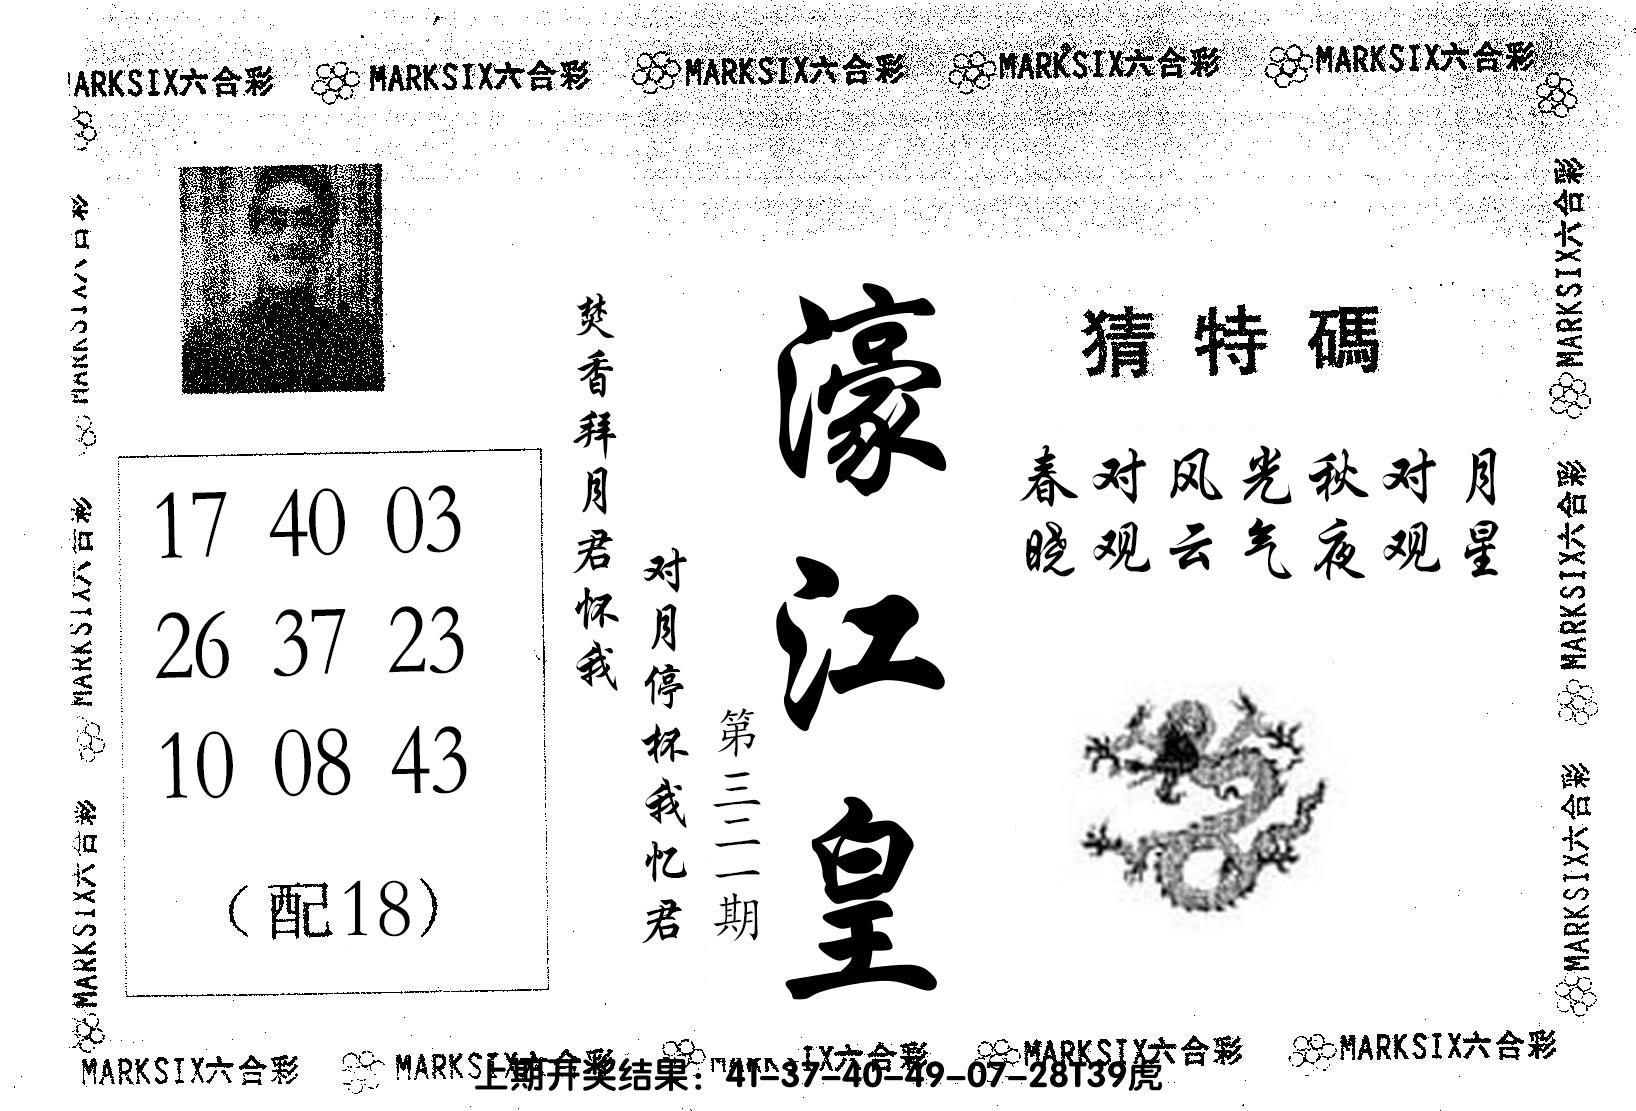 MARKSIX六合彩 MARKSIX六合彩 MARKSIX六合彩 MARKSIX六合彩 MARKSIX六合彩
猜特碼
春对风光秋对月
晓观云气夜观星
濠江皇
第三二一期
焚香拜月君怀我
对月停杯我忆君
17 40 03
26 37 23
10 08 43
（配18）
MARKSIX六合彩
MARKSIX六合彩
MARKSIX六合彩
MARKSIX六合彩
MARKSIX六合彩
MARKSIX六合彩
MARKSIX六合彩 MARKSIX六合彩 MARKSIX六合彩 MARKSIX六合彩 MARKSIX六合彩
上期开奖结果：41-37-40-49-07-28T39虎